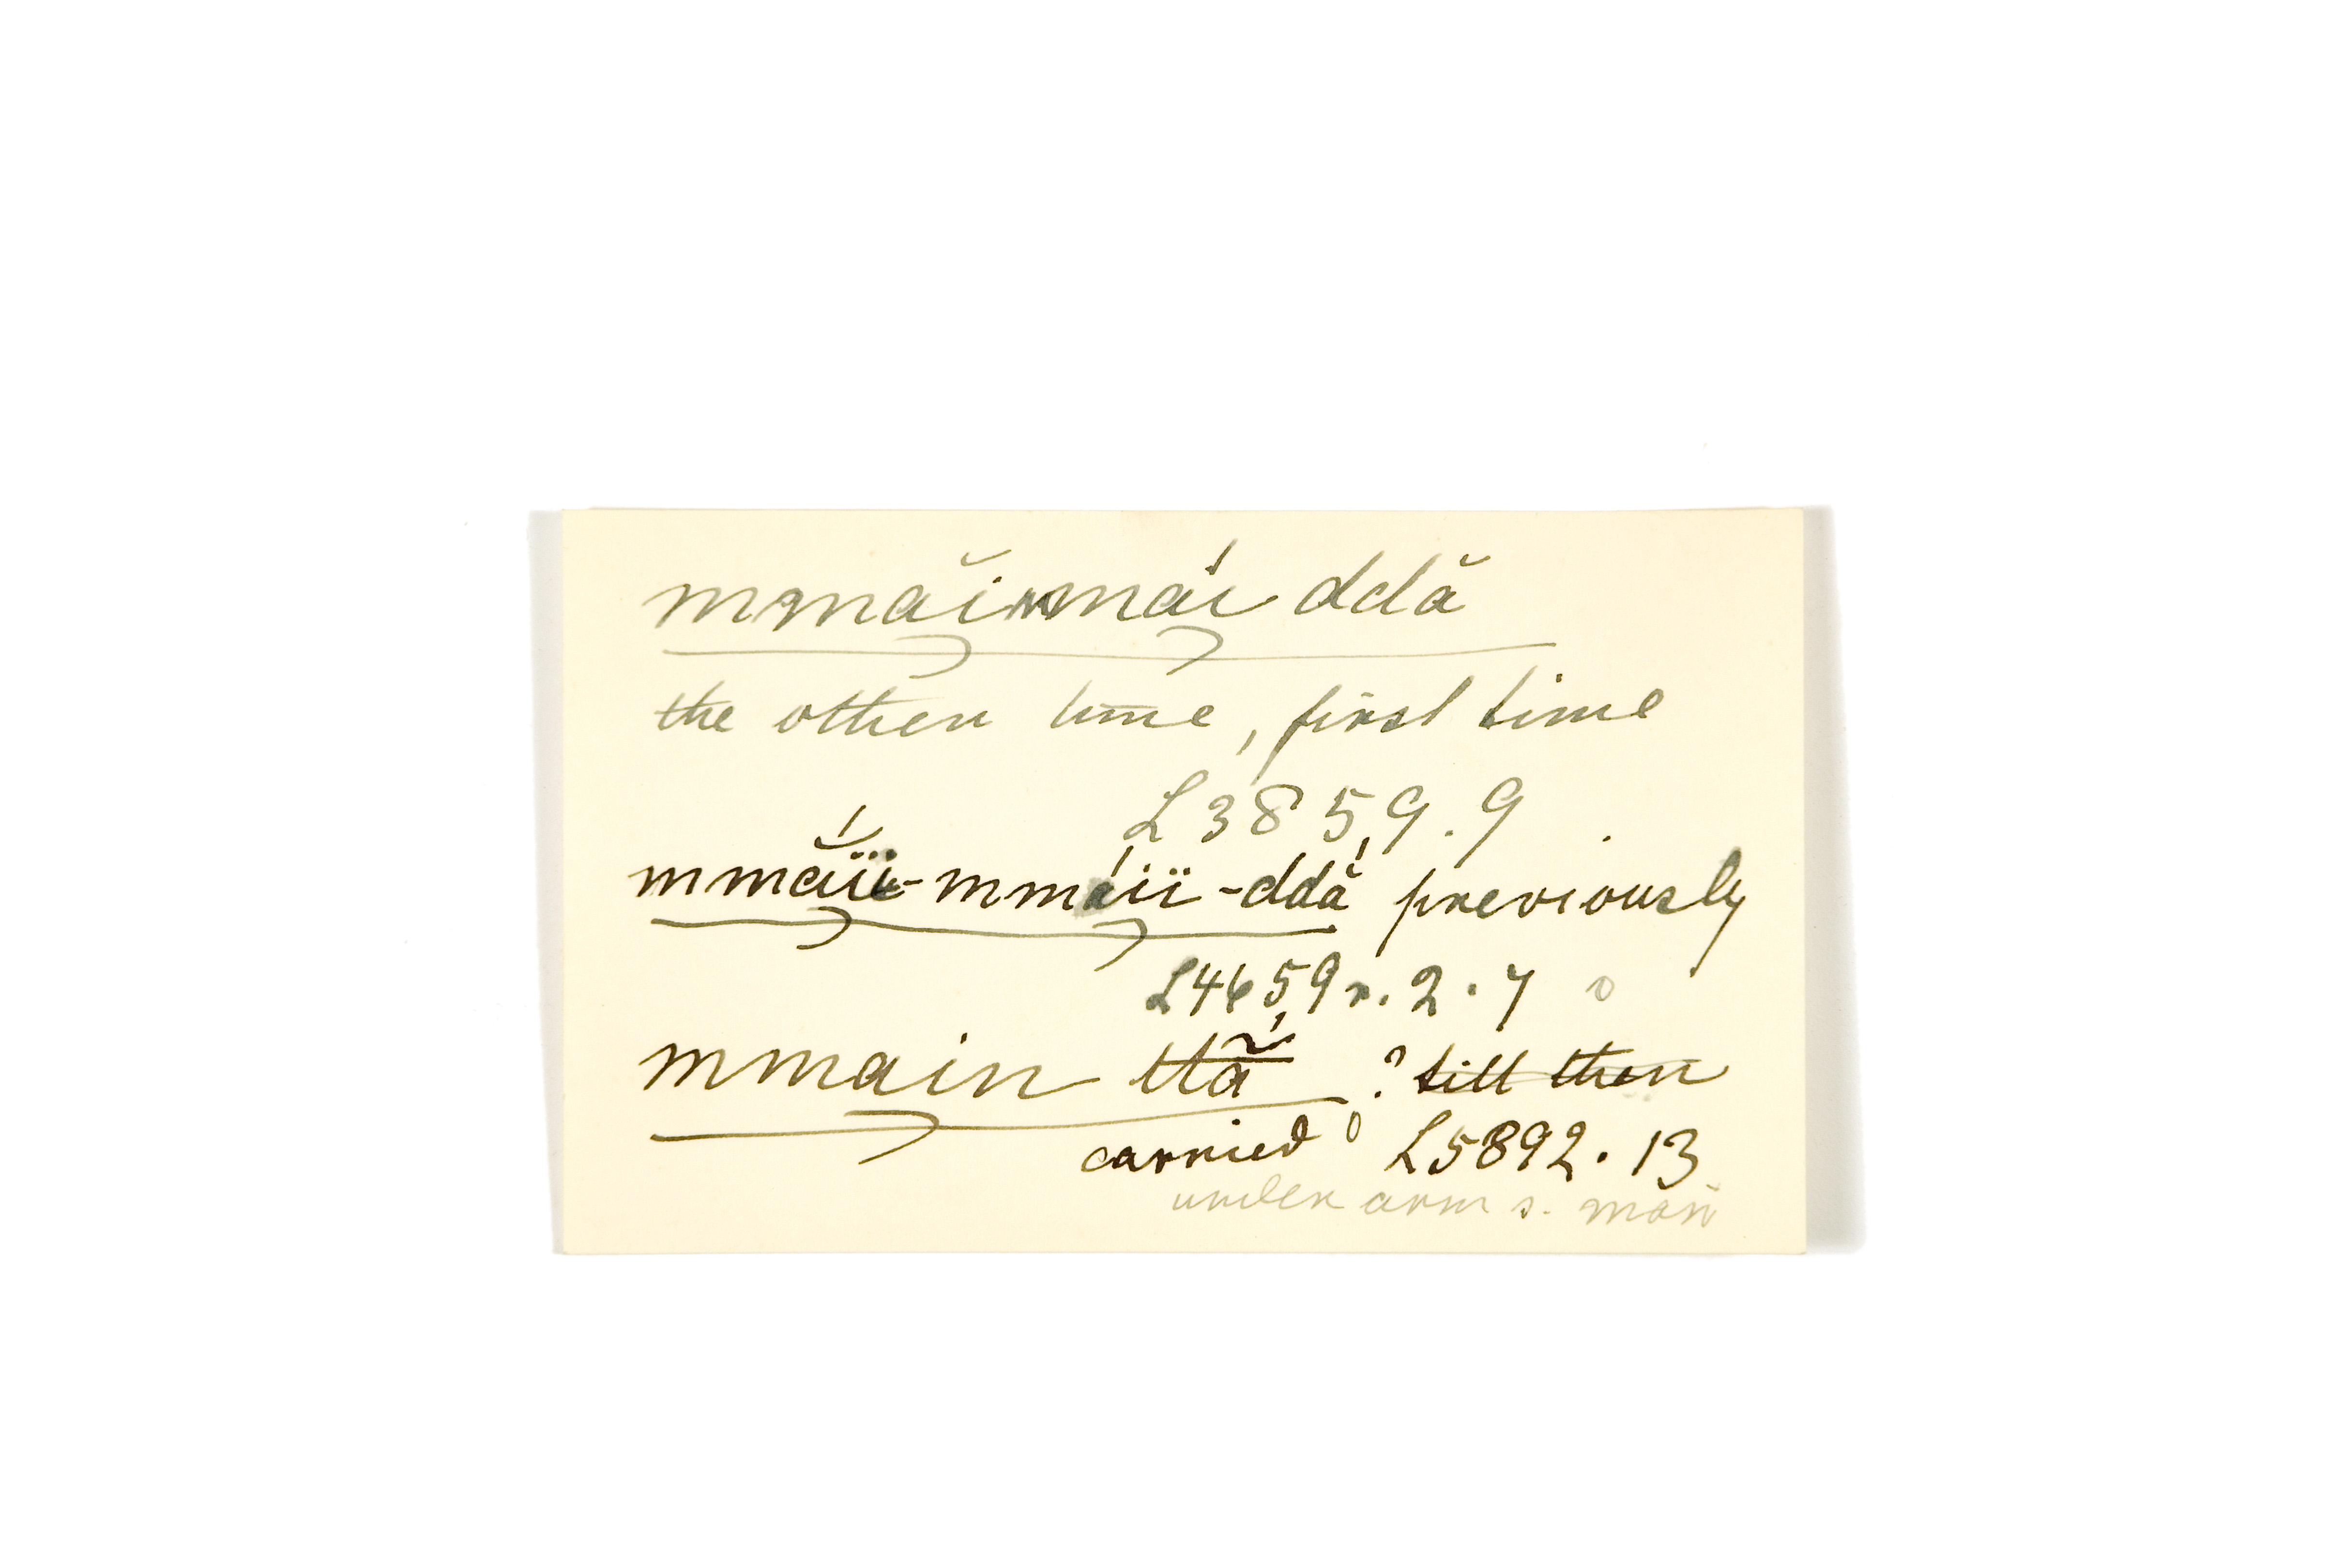 mmăimmái ddă
the other time, first time
L3859.9
mmăíï-mmáiï-ddắ previously
L4659r.2.7
mmain ttã́ ? till then
carried L5892.13
under arm s. man